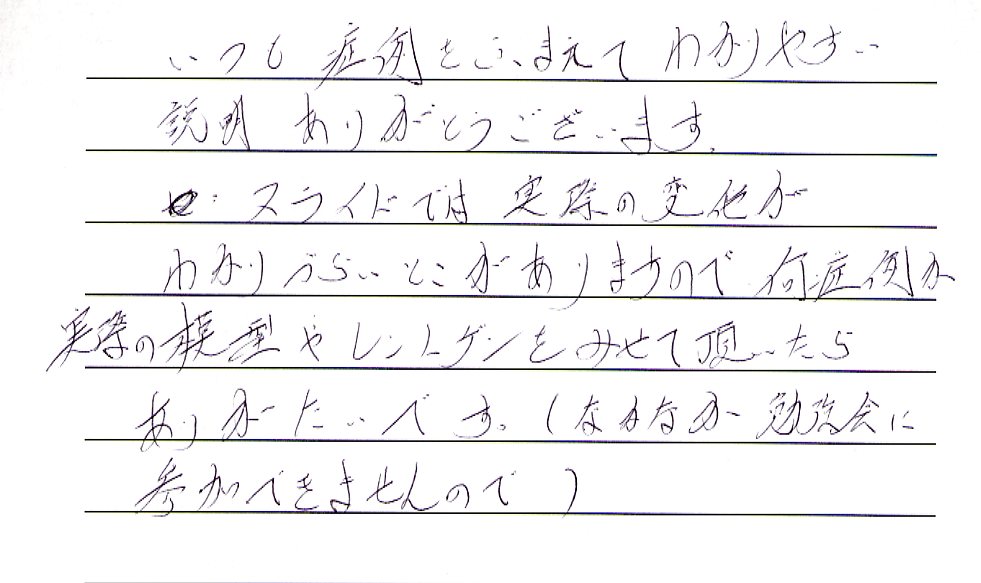 いつも 症例をふまえて わかりやすい
説明 ありがとうございます。
スライドでは 実際の変化が
わかりづらいとこがありますので 何症例か
実際の模型やレントゲンをみせて頂いたら
ありがたいです。(なかなか 勉強会に
参加できませんので)